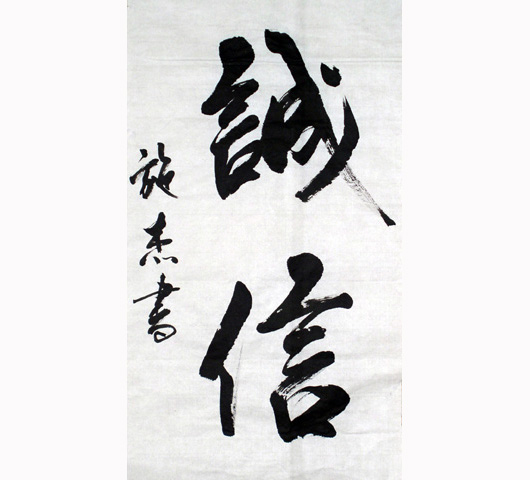 誠信
施杰書